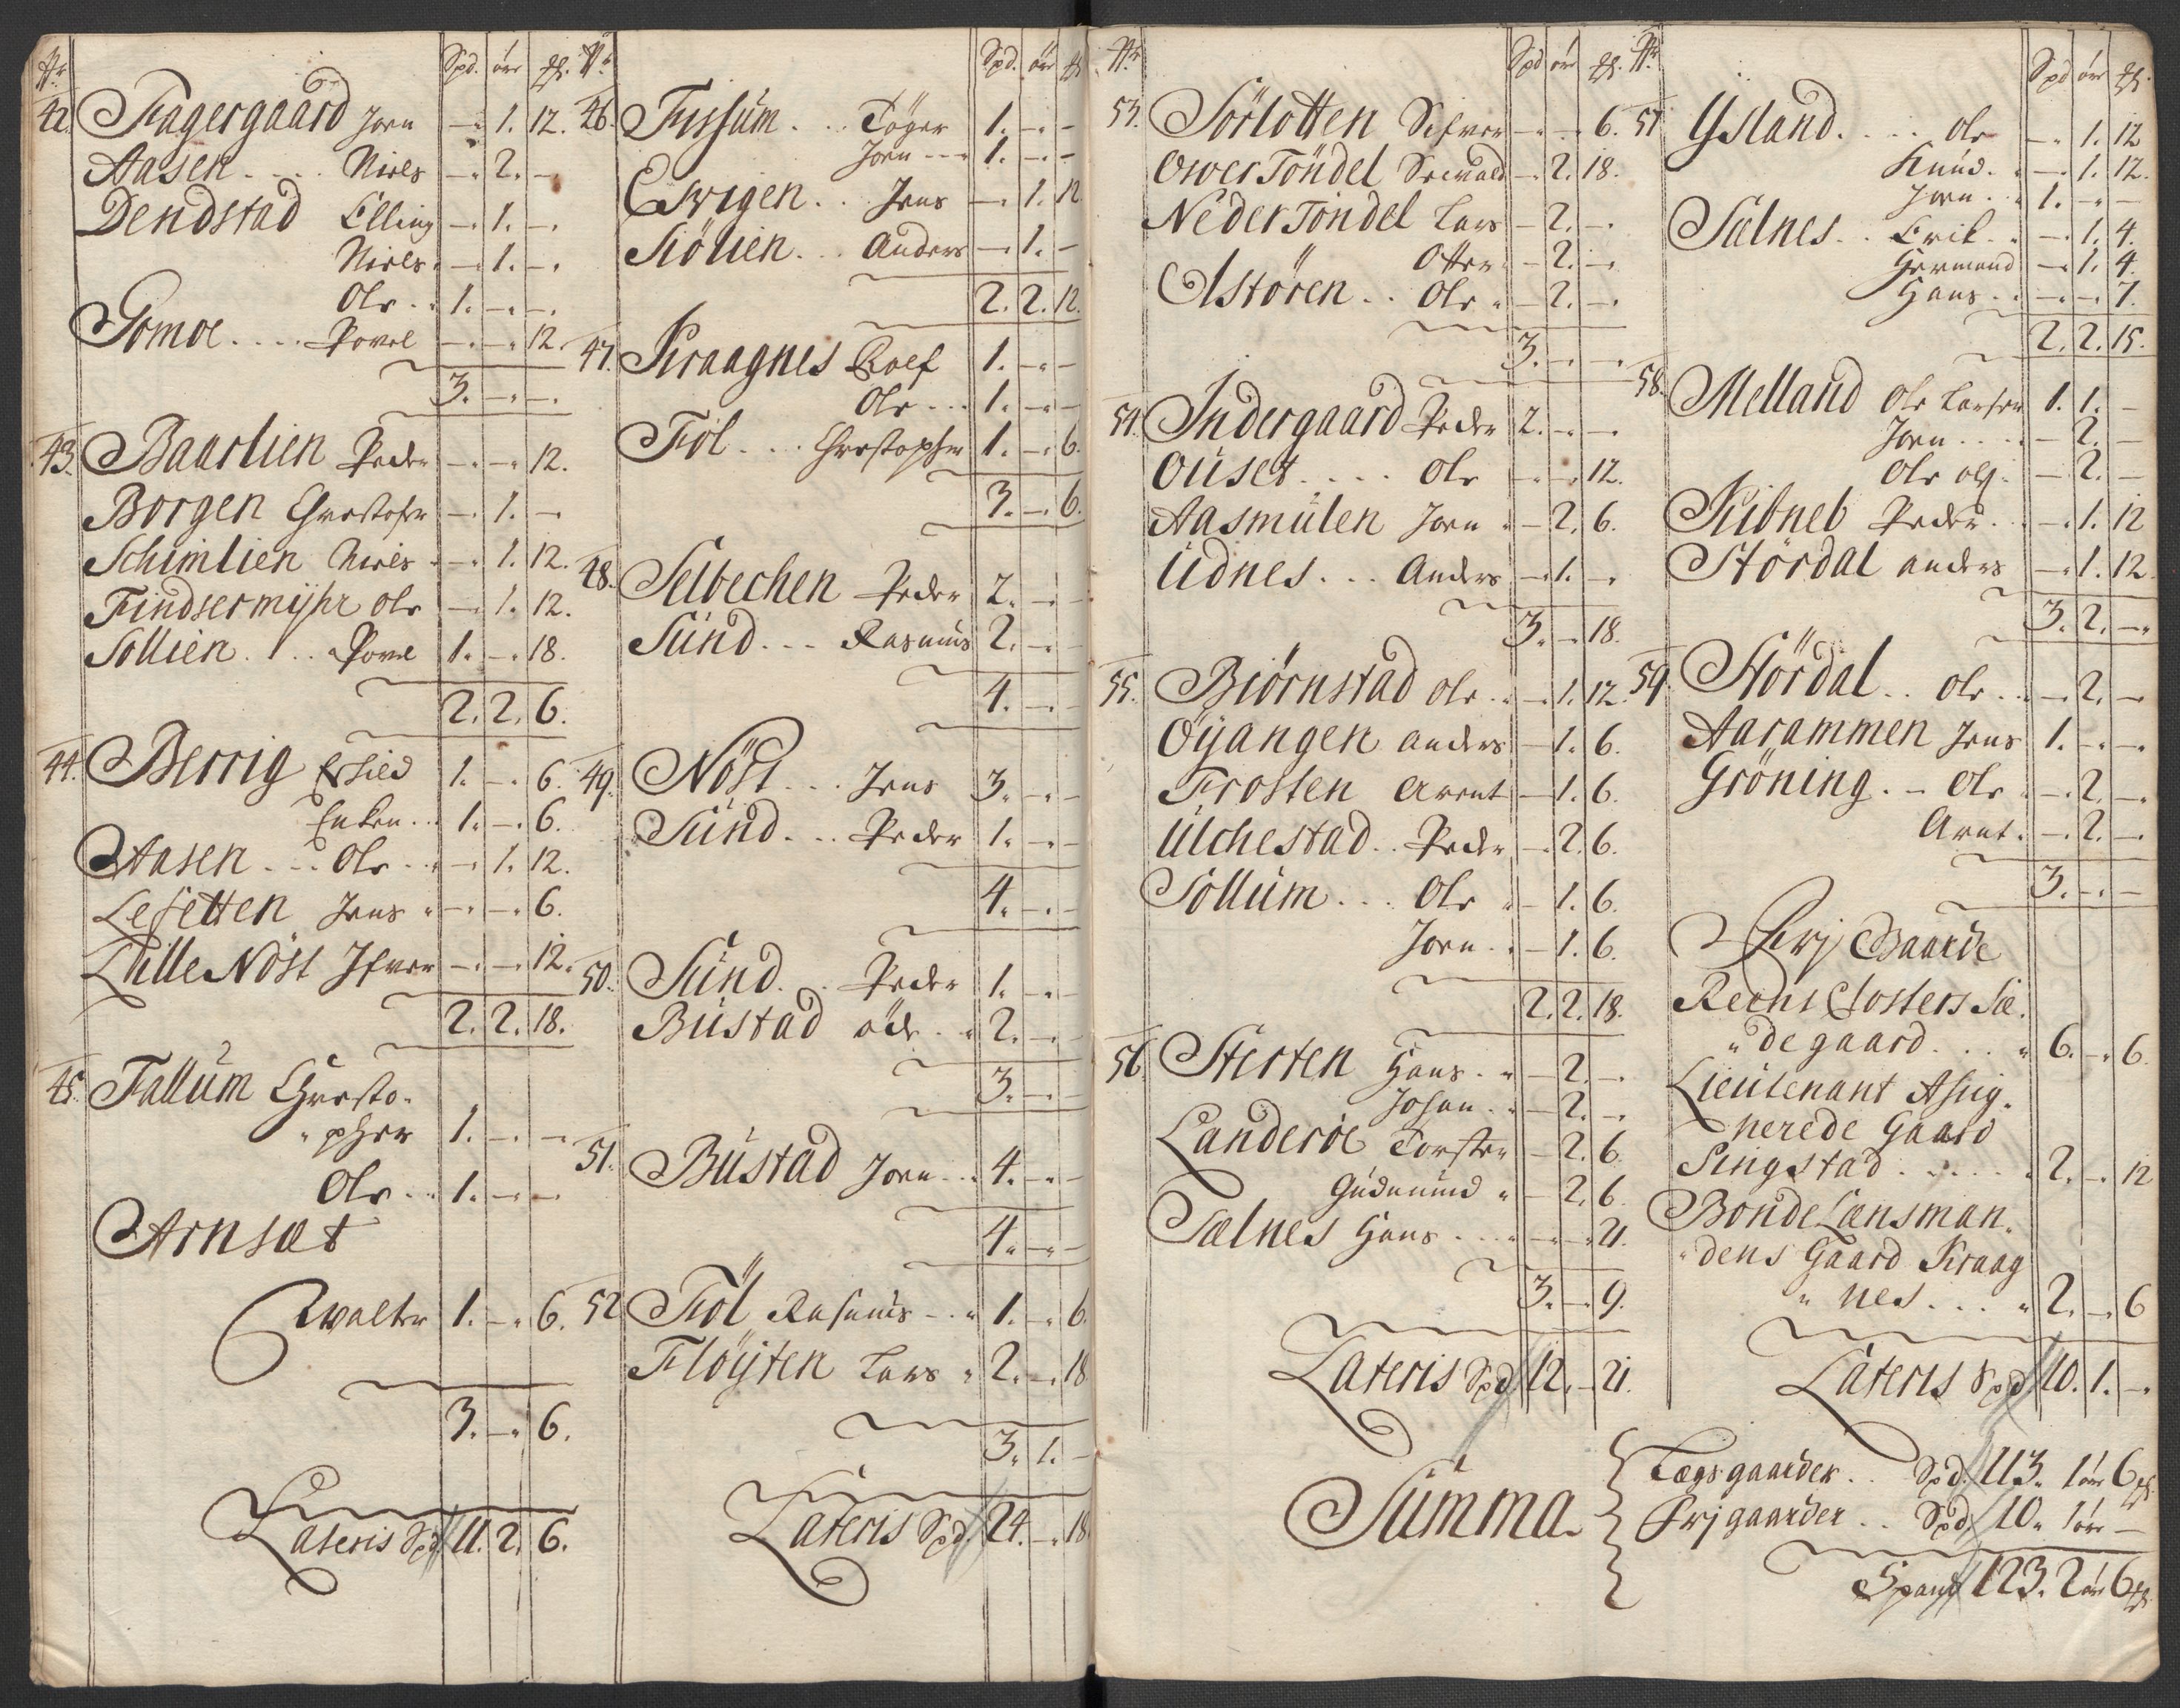 Nr Spd. ör mk.
42. Fagergaard Joen -. 1. 12.
Aasen .... Niels -. 2. -.
Dendstad Elling -. 1. -.
Niels -. 1. -.
Ole .. 1. -. -.
Gomoe .... Povel -. -. 12.
3. -. -.
43. Baarlien Peder -. -. 12.
Borgen Christofer -. 1. -.
Schimlien Niels -. 1. 12.
Findsermyhr Ole -. 1. 12.
Sollien ... Povel 1. -. 18.
2. 2. 6.
44. Berrig 1. -. 6.
Enken .. 1. -. 6.
Aasen ... Ole .. -. 1. 12.
Lefetten Jens -. -. 6.
Lille Nöst Ifver -. -. 12.
2. 2. 18.
45. Fallum Christo-
pher 1. -. -.
Ole .. 1. -. -.
Arnsæt
Ewalter 1. -. 6.
3. -. 6.
Lateris Spd 11. 2. 6.
Nr Spd. ör mk
46. Fissum ... Töger 1. -. -
Joen --- 1. -. -
Eswigen .. Jens -. 1. 12
Siölien ... Anders -. 1. -
2. 2. 12.
47. Kraagnes Roef 1. -. -
Ole ... 1. -. -
Föl ... Christopher 1. -. 6.
3. -. 6.
48. Selbechen Peder 2. -. -
Sund --- Rasmus 2. -. -
4. -. -
49. Nöst ... Jens 3. -. -
Sund ... Peder 1. -. -
4. -. -
50. Sund .. Peder 1. -. -
Bustad öde .. 2. -. -
3. -. -
51. Bustad Joen .. 4. -. -
4. -. -
52 Föl Rasmus -. 1. -. 6.
Flöyten Lars 2. -. 18
3. 1. -
Lateris Spd. 24. -. 18
Nr Spd ör mk.
53. Sörlotten Sifver -. -. 6.
Ower Töndel Seewald -. 2. 18.
Neder Töndel Lars - 2. -.
Otter - 2. -.
Astören .. Ole - 2. -.
3. -. -.
54. Indergaard Peder 2. -. -.
Ouset .... Ole -. -. 12.
Aasmulen Joen - 2. 6.
Udnes ... Anders -. 1. -.
3. -. 18.
55. Biörnstad Ole .. -. 1. 12.
Öyangen Anders - 1. 6.
Frosten Arent - 1. 6.
Ulchestad .. Peder - 2. 6.
Sollum ... Ole - 1. 6.
Joen .. - 1. 6.
2. 2. 18.
56. Sterten Hans . - 2. -.
Johan . - 2. -.
Landeröe Torsten - 2. 6.
Gudmund - 2. 6.
Sælnes Hans ... -. -. 21.
3. -. 9.
Lateris Spd 12. - 21.
Nr Spd ör mk
57 Ysland .... Ole -. 1. 12
Knud. -. 1. 12.
Joen .. 1. -. -
Sælnes .. Erik .. -. 1. 4.
Germund -. 1. 4.
Hans .. -. -. 7.
2. 2. 15.
58. Melland Ole Larsen 1. 1. -
Joen .... - 2. -
Ole Ols. - 2. -
Kibneb Peder .. -. 1. 12
Stördal Anders -. 1. 12.
3. 2. -.
59. Stördal .. Ole .. -. 2. -
Aarammen Jens 1. -. -.
Gröning . - Ole -. 2. -.
Arnt . -. 2. -.
3. -. -
Frj Gaarde
Reens Closters Sæ-
degaard ... 6. -. 6.
Lieutenant Assig-
nerede Gaard
Singstad ..... 2. -. 12
Bonde Lænsman-
dens Gaard Kraag
nes ... 2. -. 6
Lateris Spd 10. 1. -.
Summa.
Lægsgaarder .. Spd. 113. 1 ör 6 mk.
Frjgaarder .. Spd. 10. 1 ör -
Spand 123. 2 ör 6 mk.